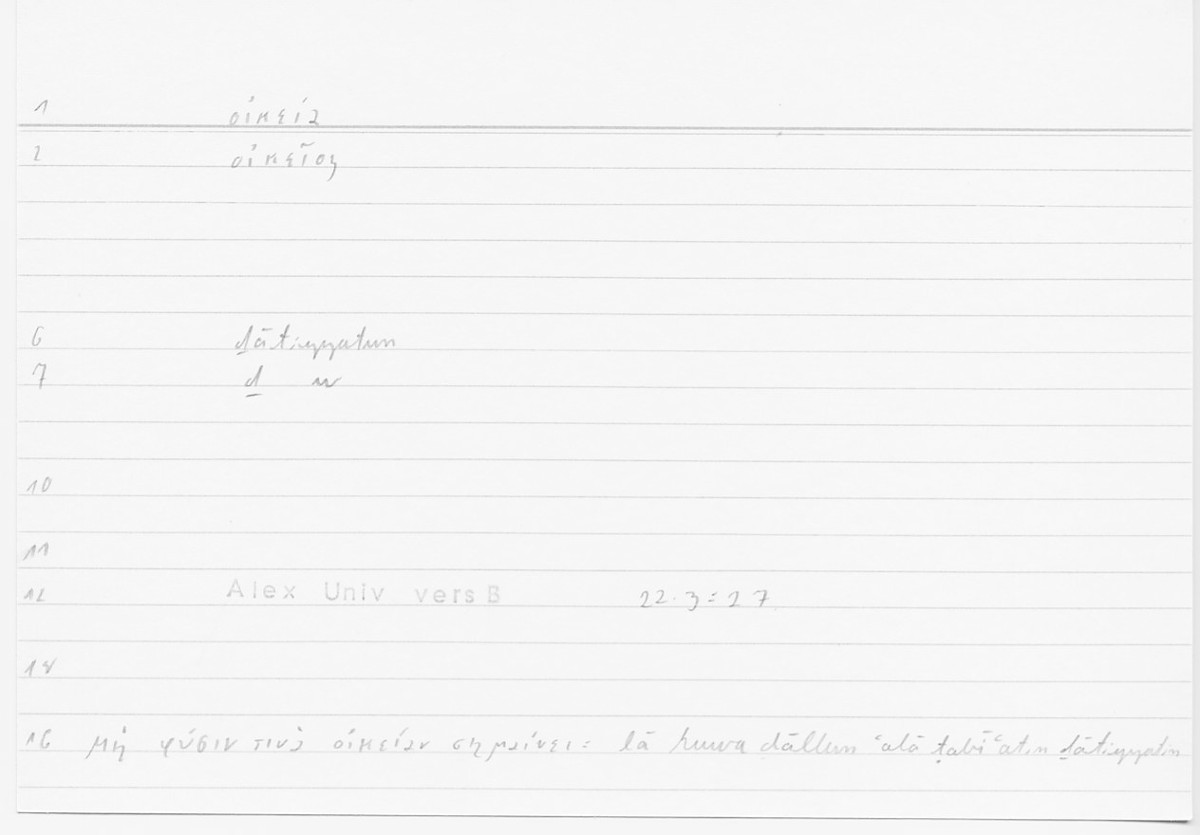 1 οἰκεία
2 οἰκεῖος
6 ḏātiyyatun
7 ḏ w
10
11
12 Alex Univ vers B 22.3 = 27
14
16 μὴ φύσιν τινὰ οἰκείαν σημαίνει = lā huwa dāllun ʿalā ṭabīʿatin ḏātiyyatin